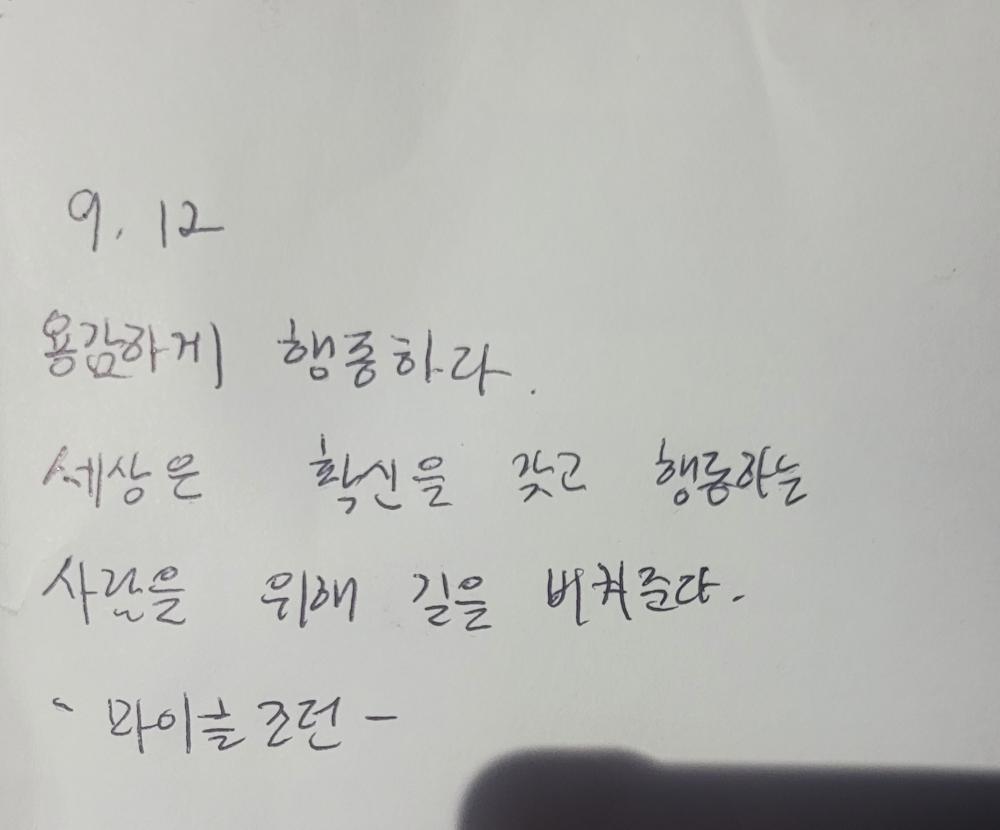 9. 12
용감하게 행동하라.
세상은 확신을 갖고 행동하는
사람을 위해 길을 비켜준다.
- 마이클 조던 -